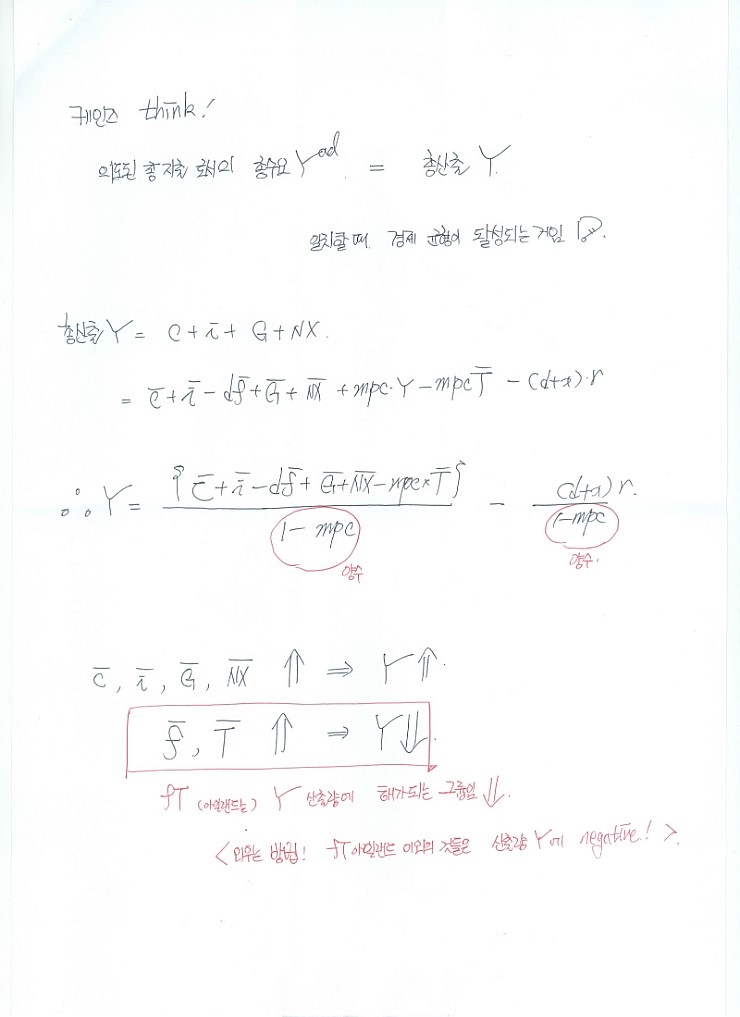 케인즈 think!
의도된 총지출 로서의 총수요 Y^ad = 총산출 Y.
일치할 때. 경제 균형이 달성되는 거임
총산출 Y = C + i + G + NX.
= C̅ + i̅ - df̅ + G̅ + N̅X̅ + mpc·Y - mpc T̅ - (d+x)·r
∴ Y = {C̅ + i̅ - df̅ + G̅ + N̅X̅ - mpc × T̅} / (1 - mpc) - (d+x) r. / (1-mpc)
양수 양수.
C̅, i̅, G̅, N̅X̅ ⇑ ⇒ Y ⇑.
f̅, T̅ ⇑ ⇒ Y ⇓.
fT (아일랜드는) Y 산출량에 해가되는 그룹임 ⇓.
< 외우는 방법! fT아일랜드 이외의 것들은 산출량 Y에 negative! >.